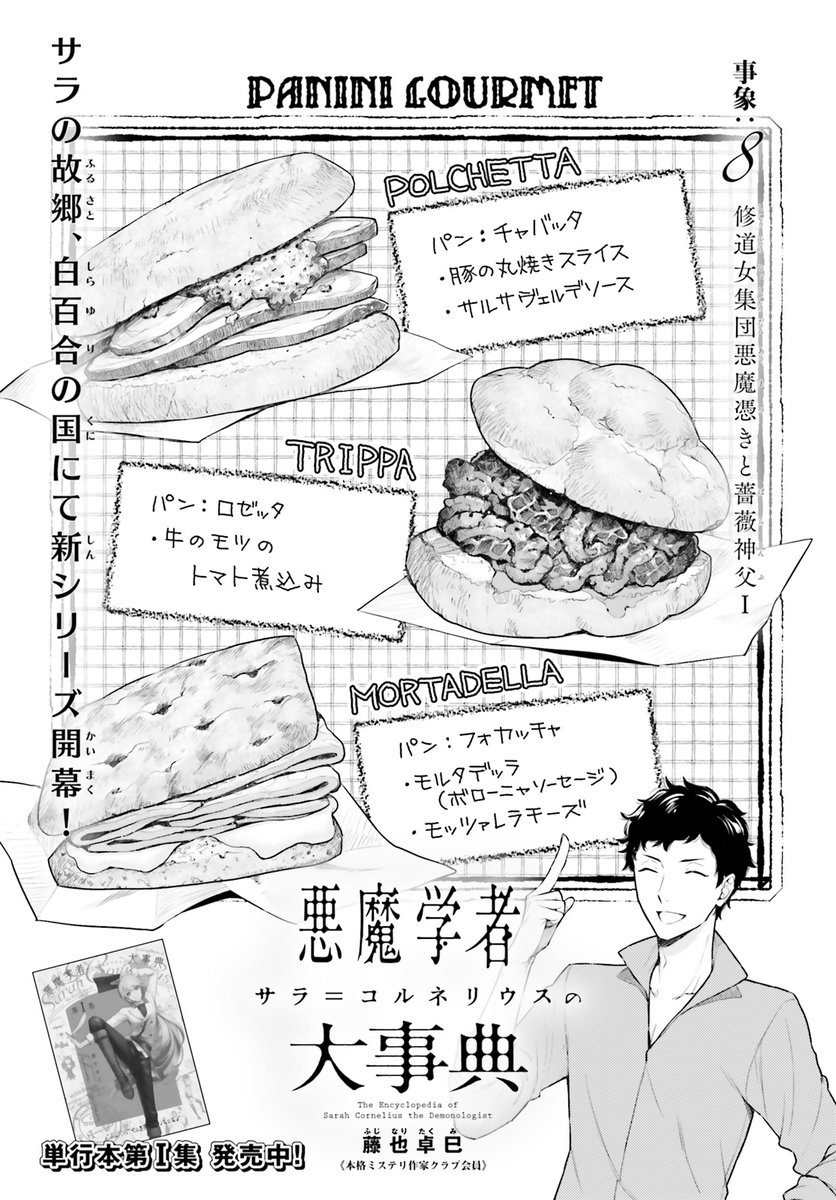 PANINI GOURMET
事象:8
修道女集団悪魔憑きと薔薇神父I
サラの故郷、白百合の国にて新シリーズ開幕!
POLCHETTA
パン:チャバッタ
・豚の丸焼きスライス
・サルサヴェルデソース
TRIPPA
パン:ロゼッタ
・牛のモツの
トマト煮込み
MORTADELLA
パン:フォカッチャ
・モルタデッラ
(ボローニャソーセージ)
・モッツァレラチーズ
悪魔学者
サラ=コルネリウスの
大事典
The Encyclopedia of
Sarah Cornelius the Demonologist
ふじなりたくみ
藤也卓巳
《本格ミステリ作家クラブ会員》
単行本第I集 発売中!